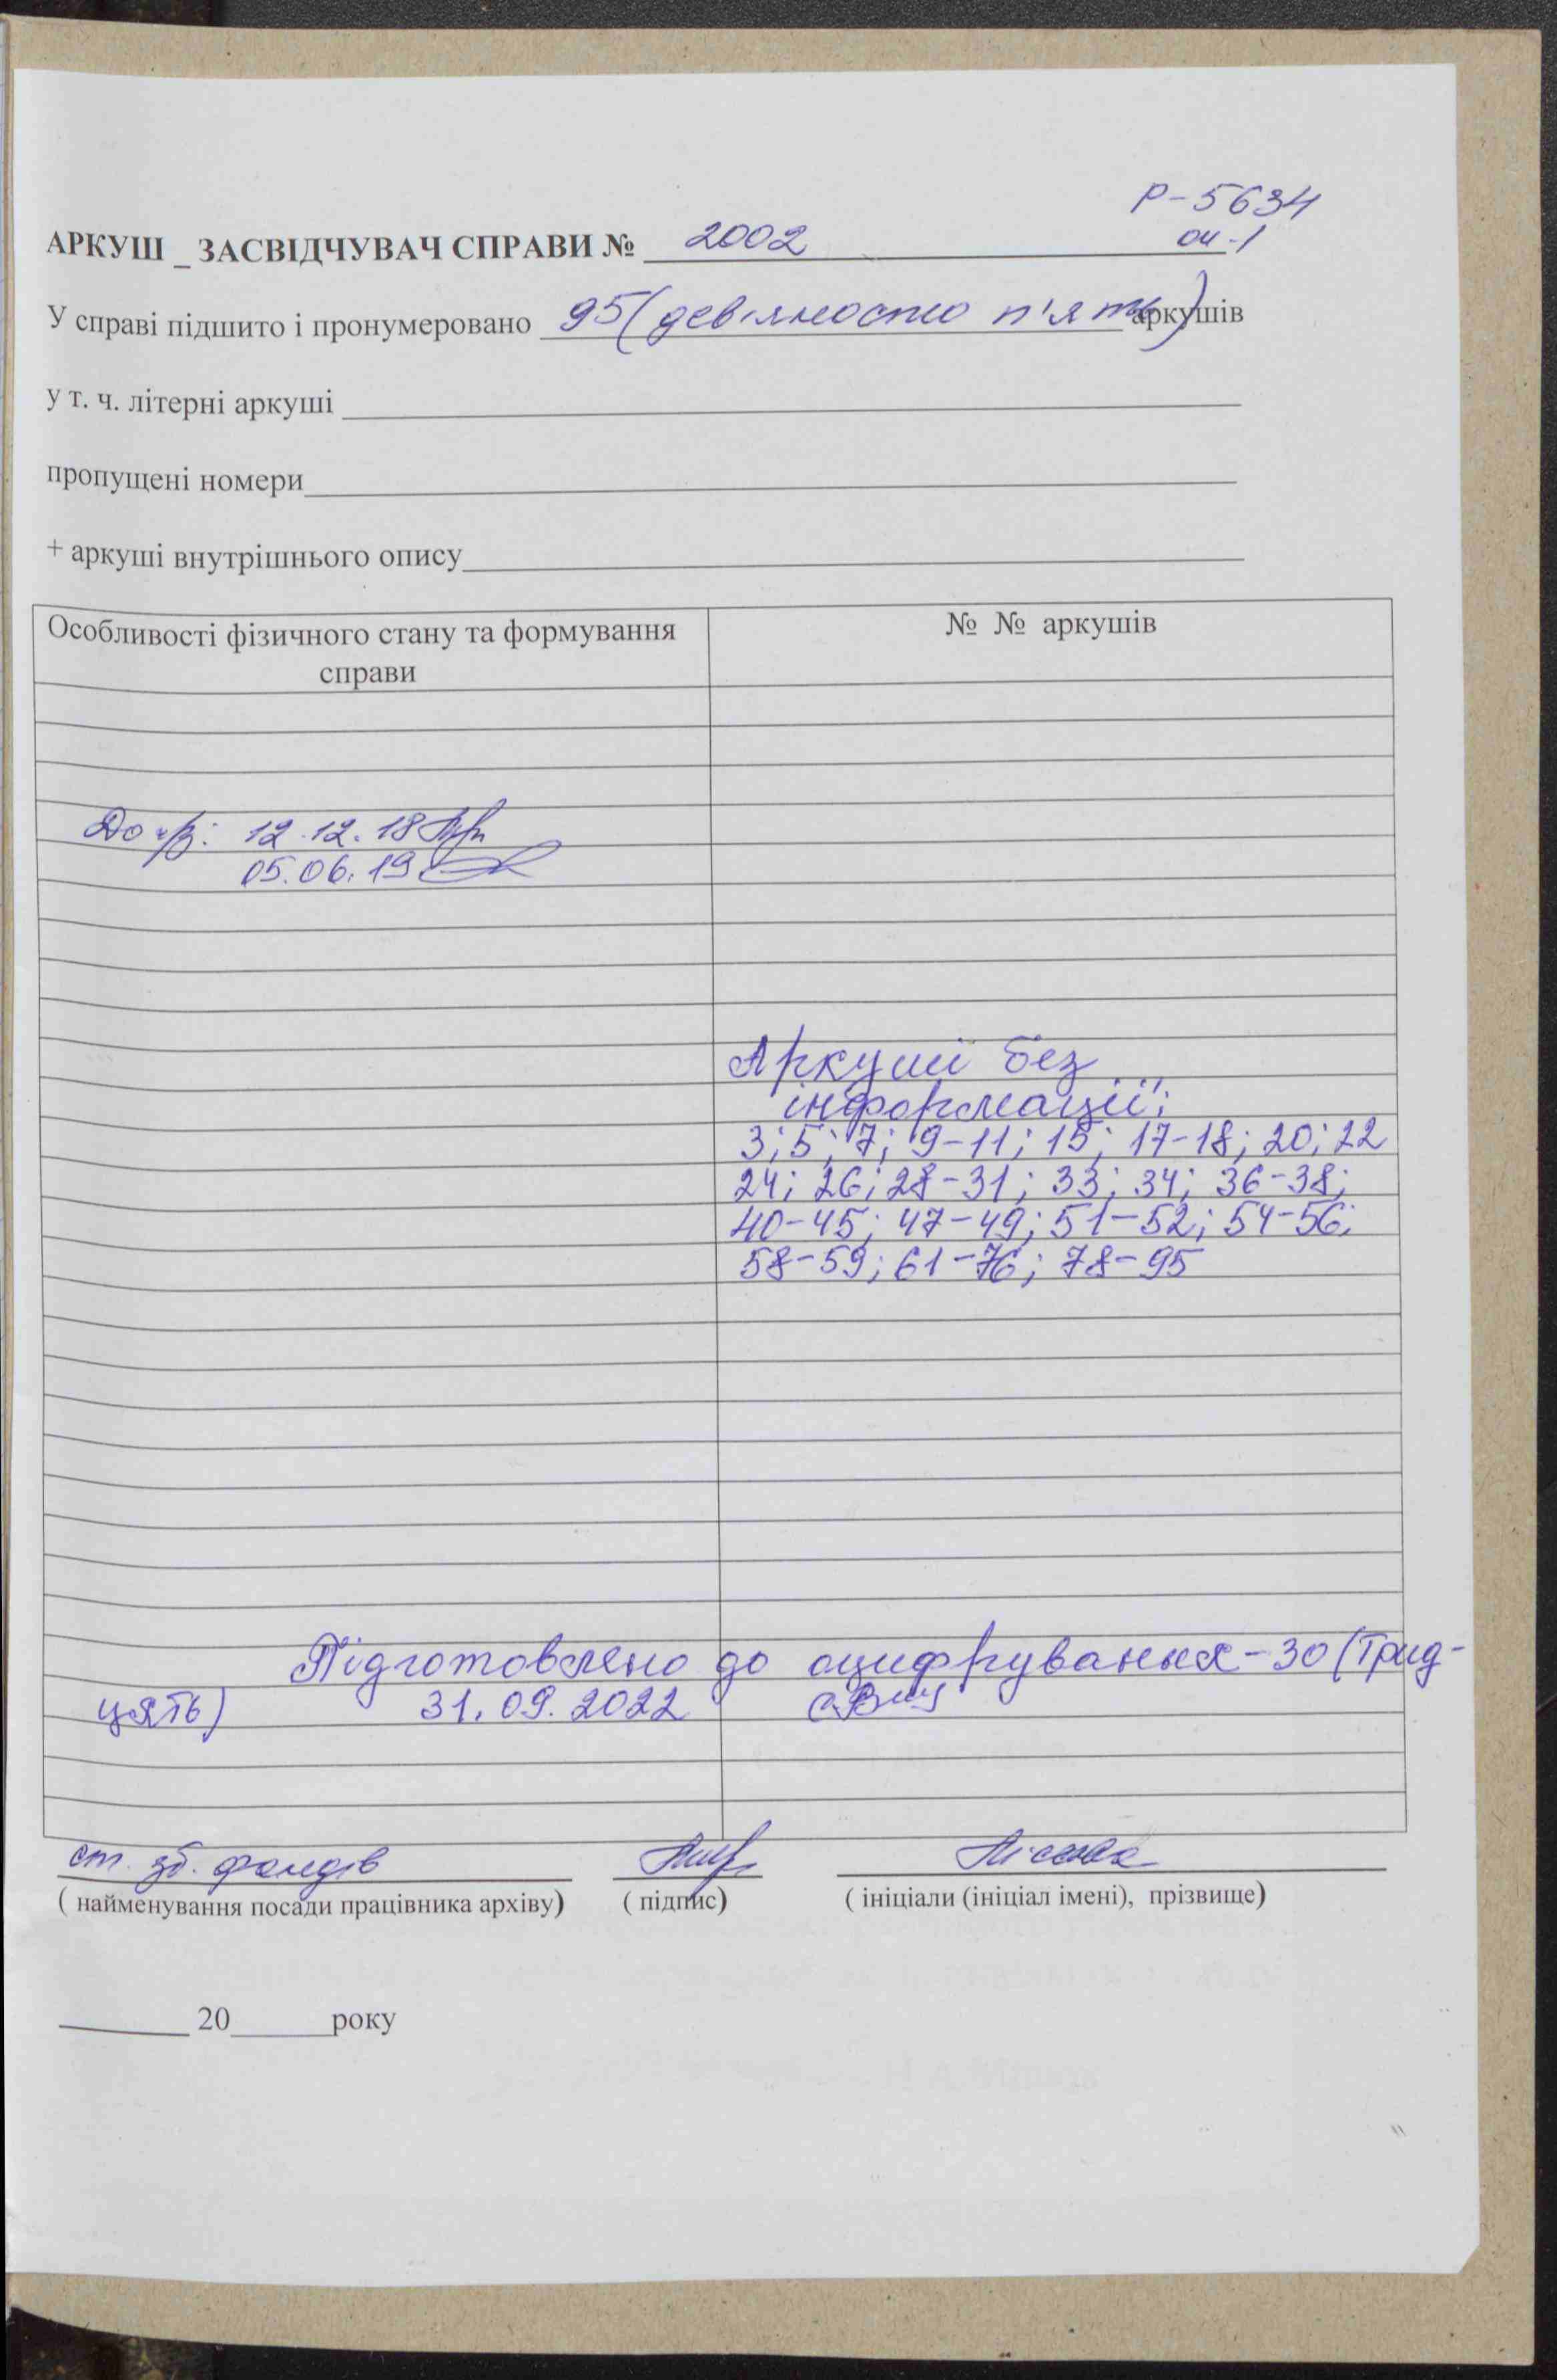 Р-5634
оп-1
АРКУШ _ ЗАСВІДЧУВАЧ СПРАВИ № 2002
У справі підшито і пронумеровано 95 (дев'яносто п'ять) аркушів
у т. ч. літерні аркуші
пропущені номери
+ аркуші внутрішнього опису
Особливості фізичного стану та формування
справи
№ № аркушів
До ч/з: 12.12.18
05.06.19
Аркуші без
інформації:
3; 5; 7; 9-11; 15; 17-18; 20; 22
24; 26; 28-31; 33; 34; 36-38;
40-45; 47-49; 51-52; 54-56;
58-59; 61-76; 78-95
Підготовлено до оцифрування - 30 (Трид-
цять) 31.09.2022
ст. зб. фондів
( найменування посади працівника архіву) ( підпис) ( ініціали (ініціал імені), прізвище)
20 року